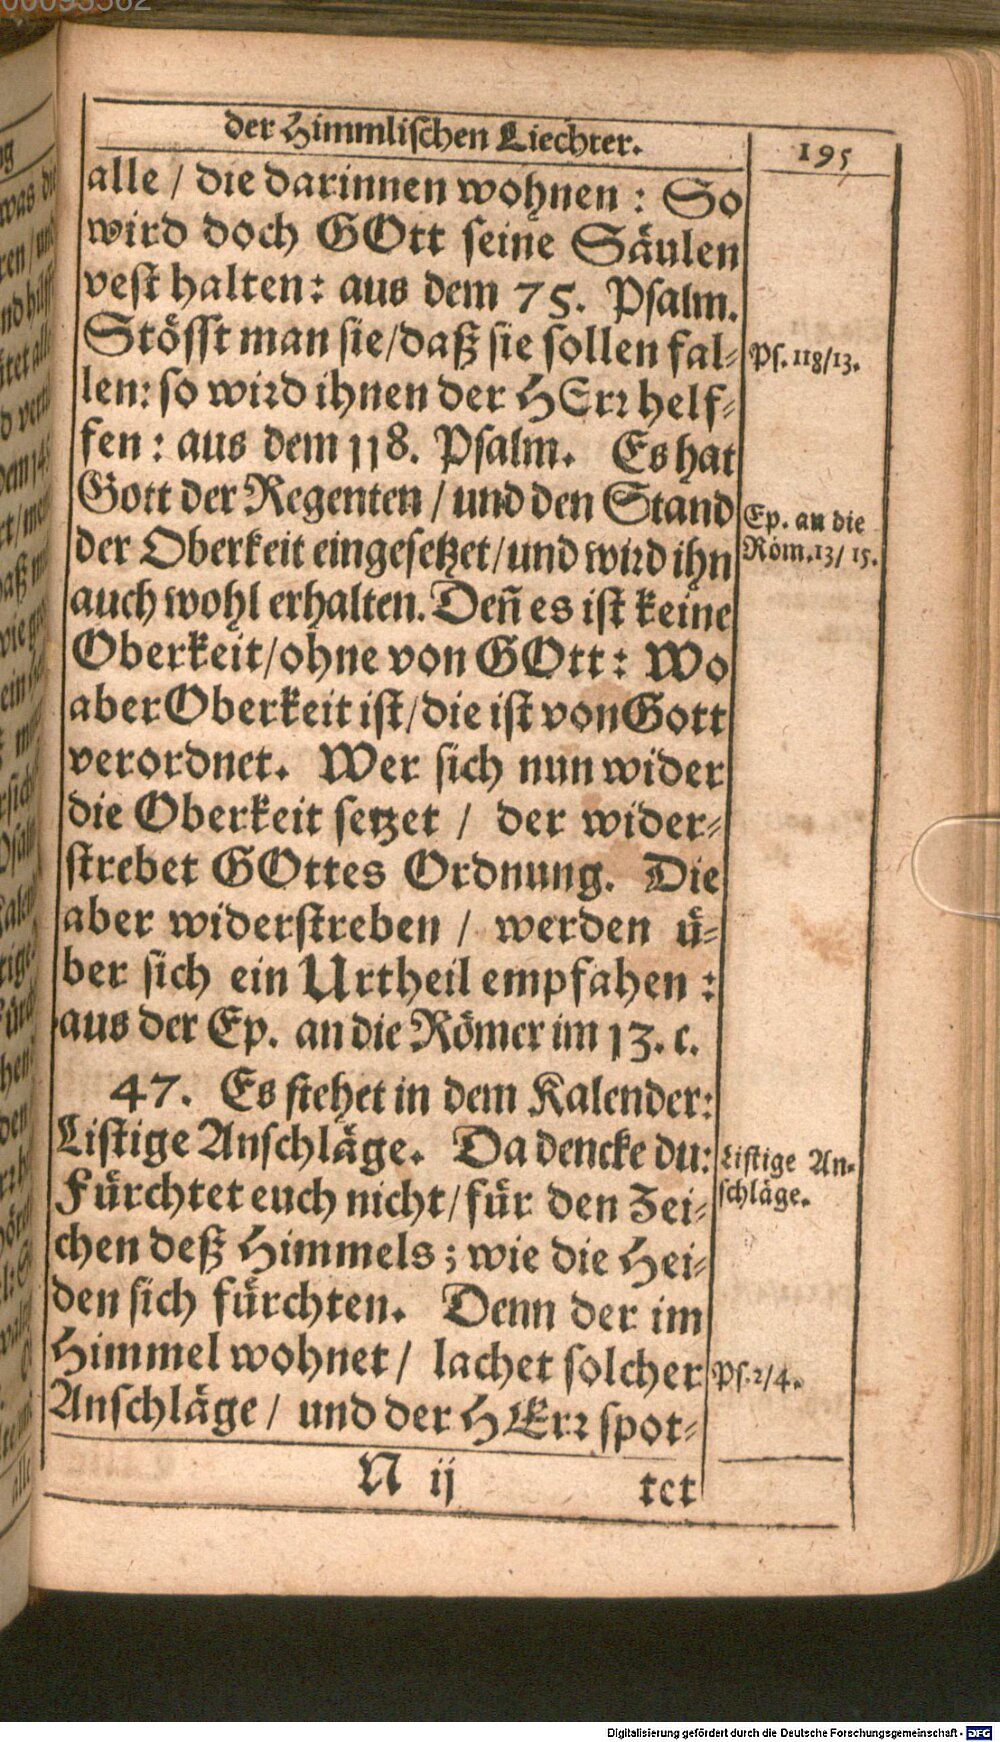 der Himmlischen Liechter.
195
alle / die darinnen wohnen : So
wird doch GOtt seine Säulen
vest halten: aus dem 75. Psalm.
Stösst man sie/daß sie sollen fal-
len: so wird ihnen der HErr helf-
fen : aus dem 118. Psalm. Es hat
Gott der Regenten / und den Stand
der Oberkeit eingesetzet/und wird ihn
auch wohl erhalten. Deñ es ist keine
Oberkeit/ohne von GOtt: Wo
aber Oberkeit ist/die ist von Gott
verordnet. Wer sich nun wider
die Oberkeit setzet / der wider-
strebet GOttes Ordnung. Die
aber widerstreben / werden ü-
ber sich ein Urtheil empfahen :
aus der Ep. an die Römer im 13. c.
47. Es stehet in dem Kalender:
Listige Anschläge. Da dencke du:
Fürchtet euch nicht/für den Zei-
chen deß Himmels; wie die Hei-
den sich fürchten. Denn der im
Himmel wohnet / lachet solcher
Anschläge / und der HErr spot-
N ij
tet
Ps. 118/13.
Ep. an die
Röm. 13/ 15.
Listige An-
schläge.
Ps. 2/4.
Digitalisierung gefördert durch die Deutsche Forschungsgemeinschaft - DFG